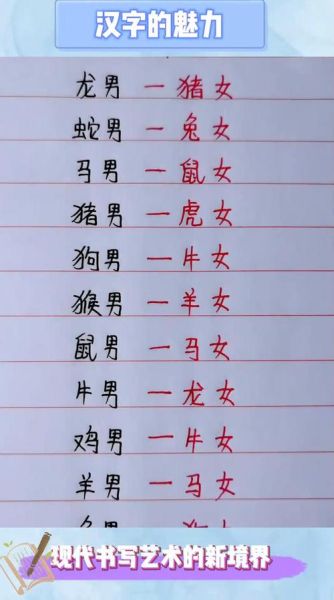 汉字的魅力
龙男 一 猪女
蛇男 一 兔女
马男 一 鼠女
猪男 一 虎女
狗男 一 牛女
猴男 一 羊女
鼠男 一 马女
牛男 一 龙女
鸡男 一 牛女
羊男 一 马女
现代书写艺术的新境界